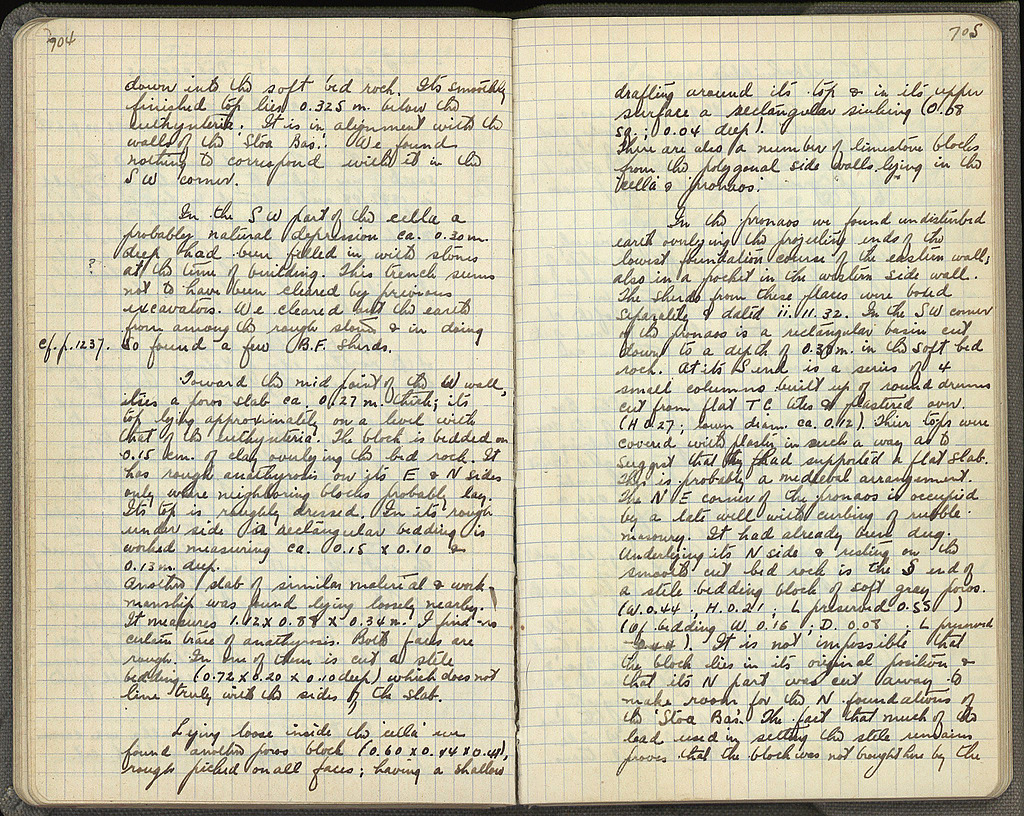 904
down into the soft bed rock. Its smoothly
finished top lies 0.325 m. below the
euthynteria. It is in alignment with the
walls of the 'Stoa Bas.'. We found
nothing to correspond with it in the
S W corner.
In the S W part of the cella a
probably natural depression ca. 0.30 m.
deep had been filled in with stones
?
at the time of building. This trench seems
not to have been cleared by previous
excavators. We cleared out the earth
from among the rough stones & in doing
cf. p. 1237.
so found a few B.F. sherds.
Toward the mid point of the W wall,
lies a poros slab ca. 0.27 m. thick; its
top lying approximately on a level with
that of the euthynteria. The block is bedded on
0.15 cm. of clay overlying the bed rock. It
has rough anathyrosis on its E & N sides
only, where neighboring blocks probably lay.
Its top is roughly dressed. In its rough
under side a rectangular bedding is
worked measuring ca. 0.15 x 0.10 &
0.13 m. deep.
Another slab of similar material & work-
manship was found lying loosely nearby.
It measures 1.12 x 0.88 x 0.34 m. I find no
certain trace of anathyrosis. Both faces are
rough. In one of them is cut a stele
bedding (0.72 x 0.20 x 0.10 deep) which does not
line truly with the sides of the slab.
Lying loose inside the 'cella' we
found another poros block (0.60 x 0.44 x 0.48),
rough picked on all faces; having a shallow
705
drafting around its top & in its upper
surface a rectangular sinking (0.08
sq.; 0.04 deep).
There are also a number of limestone blocks
from the polygonal side walls, lying in the
'cella' & 'pronaos'.
In the pronaos we found undisturbed
earth overlying the projecting ends of the
lowest foundation course of the eastern wall;
also in a pocket in the western side wall.
The sherds from these places were boxed
separately & dated 11.11.32. In the SW corner
of the pronaos is a rectangular basin cut
down to a depth of 0.30m. in the soft bed
rock. At its S end is a series of 4
small columns built up of round drums
cut from flat TC tiles & plastered over.
(H 0.27; lower diam. ca. 0.12). Their tops were
covered with plaster in such a way as to
suggest that they had supported a flat slab.
This is probably a medieval arrangement.
The N E corner of the pronaos is occupied
by a late well with curbing of rubble
masonry. It had already been dug.
Underlying its N side & resting on the
smooth cut bed rock is the S end of
a stele bedding block of soft gray poros.
(W. 0.44; H. 0.21; L preserved 0.55 )
(Of bedding W. 0.16; D. 0.08 ; L preserved
0.44). It is not impossible that
the block lies in its original position &
that its N part was cut away to
make room for the N foundations of
the 'Stoa Bas'. The fact that much of the
lead used in setting the stele remains
proves that the block was not brought here by the